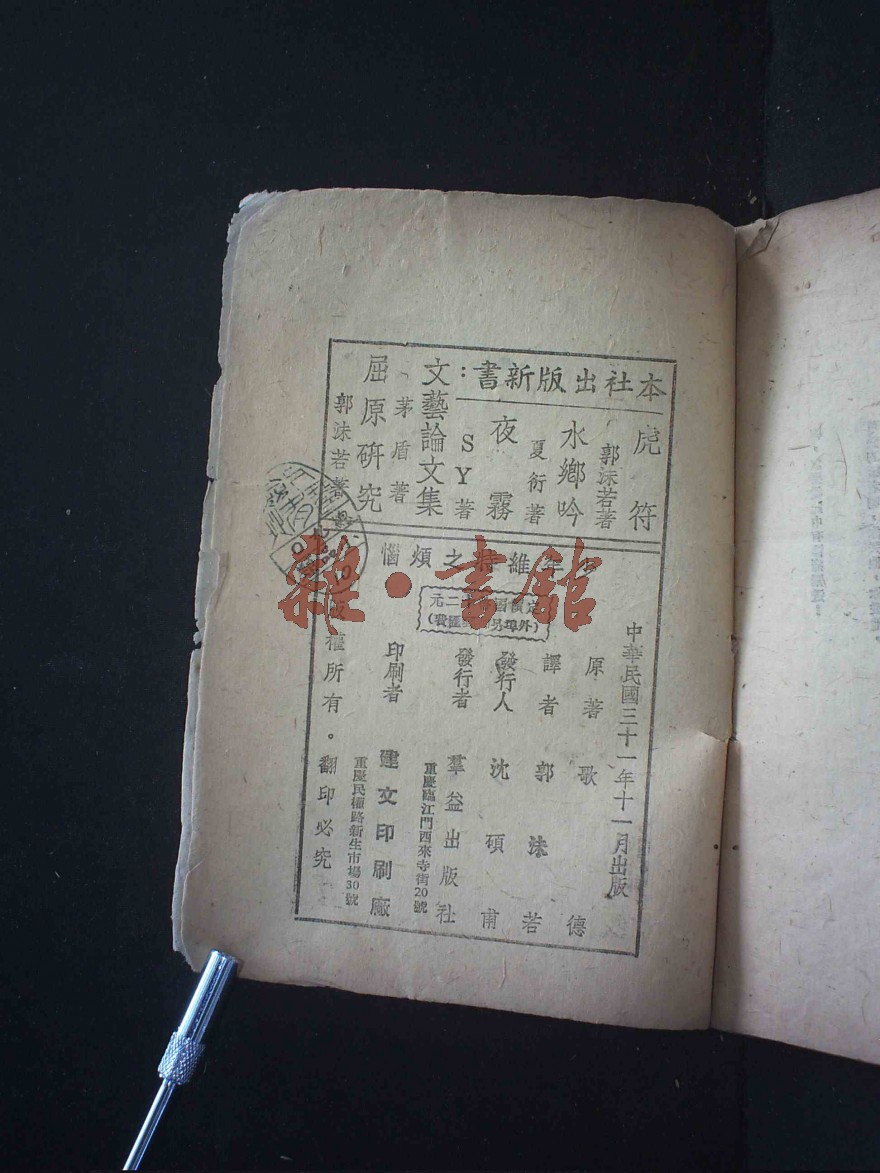 本社出版新書：
虎符
郭沫若著
水鄉吟
夏衍著
夜霧
SY著
文藝論文集
茅盾著
屈原研究
郭沫若著
維特之煩惱
二元
中華民國三十一年十一月出版
原著 歌德
譯者 郭沫若
發行人 沈碩甫
發行者 羣益出版社
重慶臨江門西來寺街20號
印刷者 建文印刷廠
重慶民權路新生市場30號
版權所有。翻印必究
雜·書館